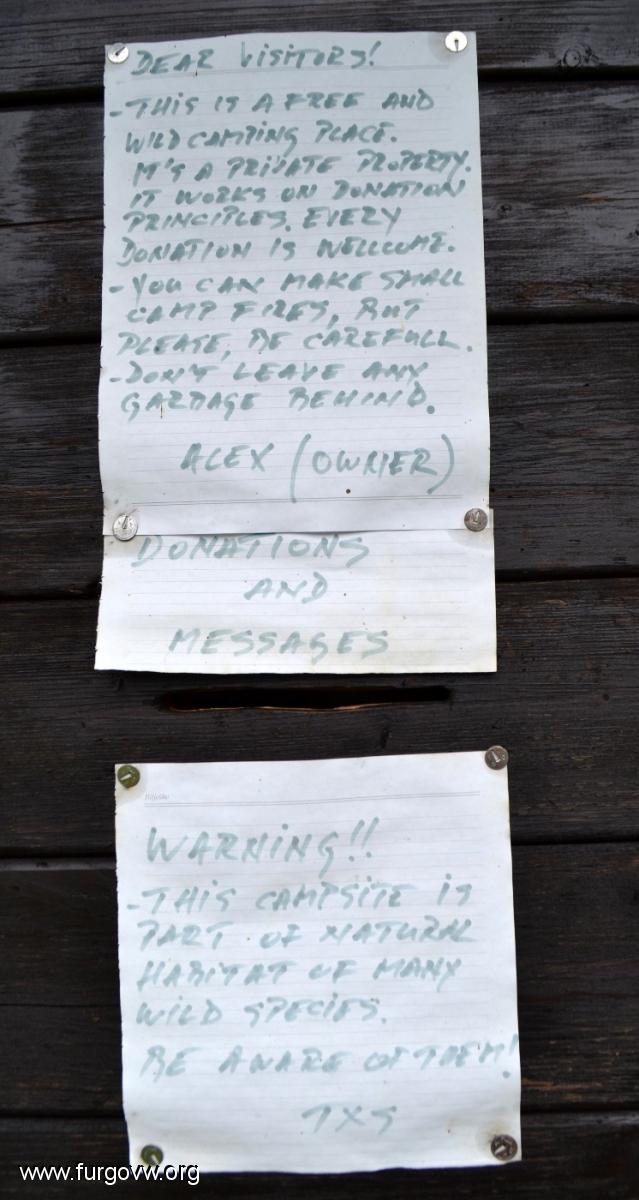 DEAR VISITORS!
-THIS IS A FREE AND
WILD CAMPING PLACE.
IT'S A PRIVATE PROPERTY.
IT WORKS ON DONATION
PRINCIPLES. EVERY
DONATION IS WELLCOME.
-YOU CAN MAKE SMALL
CAMP FIRES, BUT
PLEASE, BE CAREFULL.
-DON'T LEAVE ANY
GARBAGE BEHIND.
ALEX (OWNER)
DONATIONS
AND
MESSAGES
WARNING!!
-THIS CAMPSITE IS
PART OF NATURAL
HABITAT OF MANY
WILD SPECIES.
BE AWARE OF THEM!
TXS
www.furgovw.org